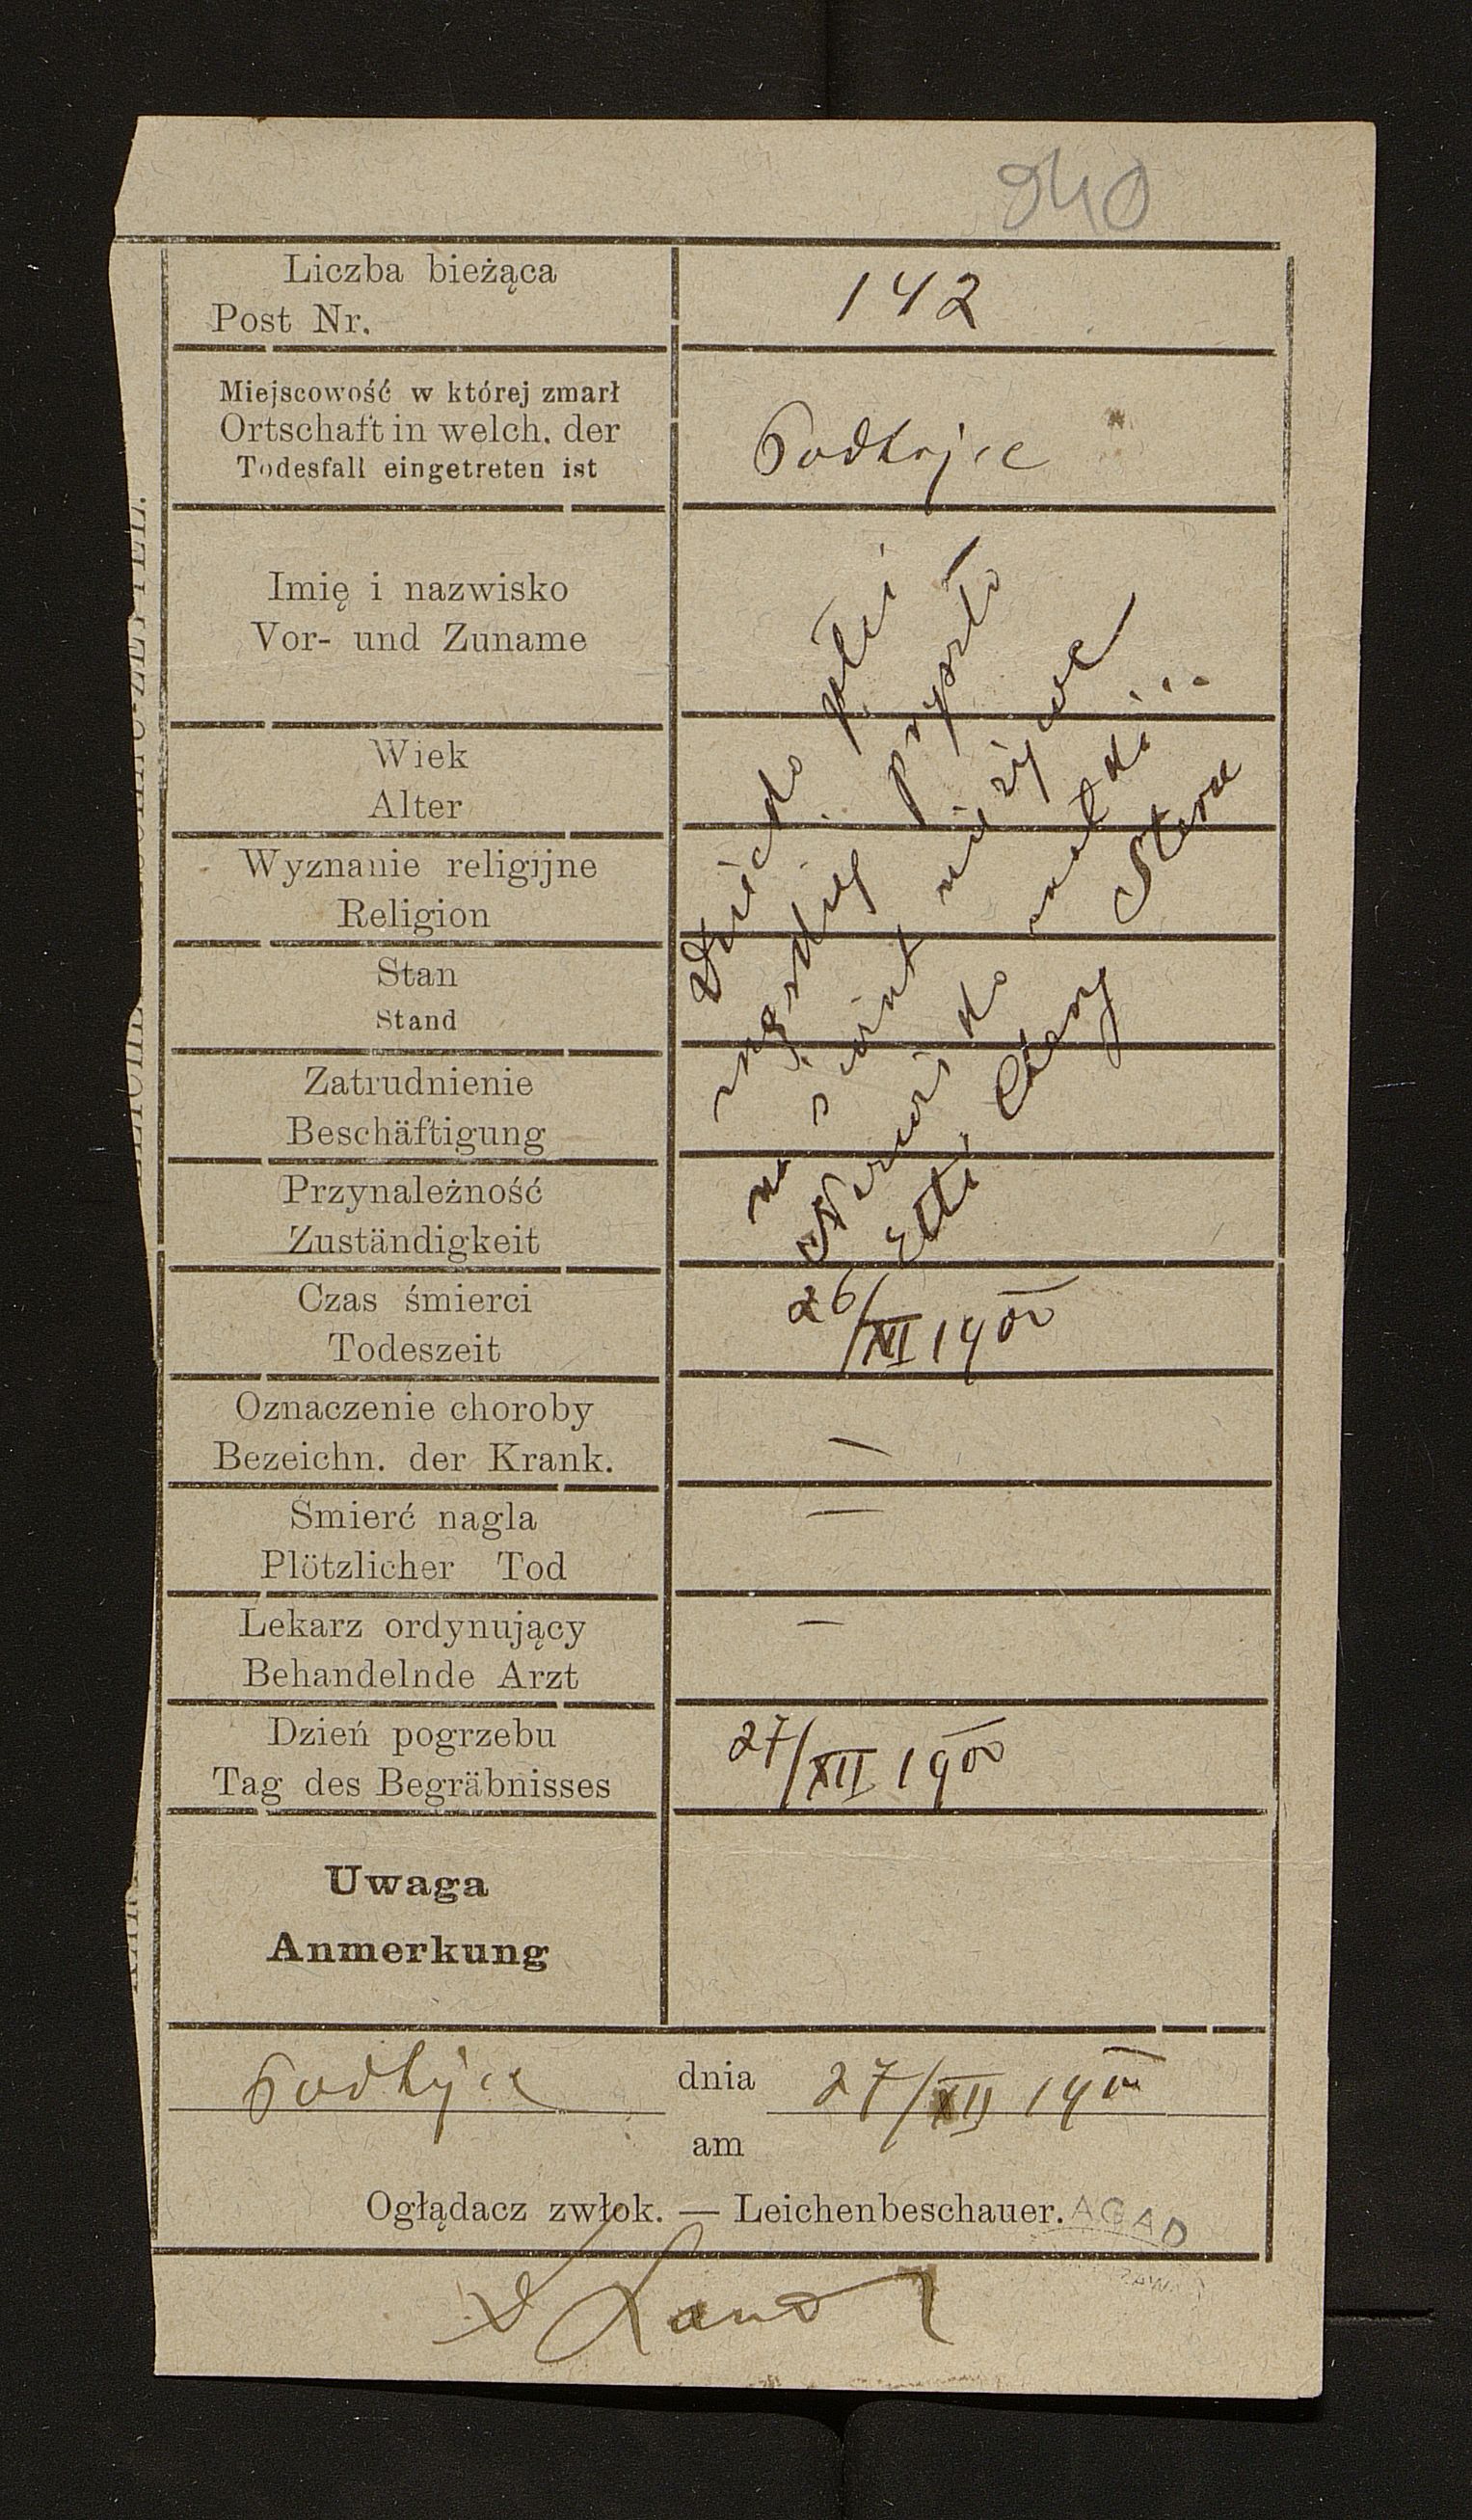 940
Liczba bieżąca
Post Nr.
142
Miejscowość w której zmarł
Ortschaft in welch. der
Todesfall eingetreten ist
Podhajce
Imię i nazwisko
Vor- und Zuname
Dziecko płci
męzkiej przyszło
na świat nieżywe
do matki
Etti Cirny Stern
Wiek
Alter
Wyznanie religijne
Religion
Stan
Stand
Zatrudnienie
Beschäftigung
Przynależność
Zuständigkeit
Czas śmierci
Todeszeit
26/XII 1900
Oznaczenie choroby
Bezeichn. der Krank.
—
Śmierć nagla
Plötzlicher Tod
—
Lekarz ordynujący
Behandelnde Arzt
—
Dzień pogrzebu
Tag des Begräbnisses
27/XII 1900
Uwaga
Anmerkung
Podhajce dnia 27/XII 1900
am
Oglądacz zwłok. — Leichenbeschauer.
AGAD